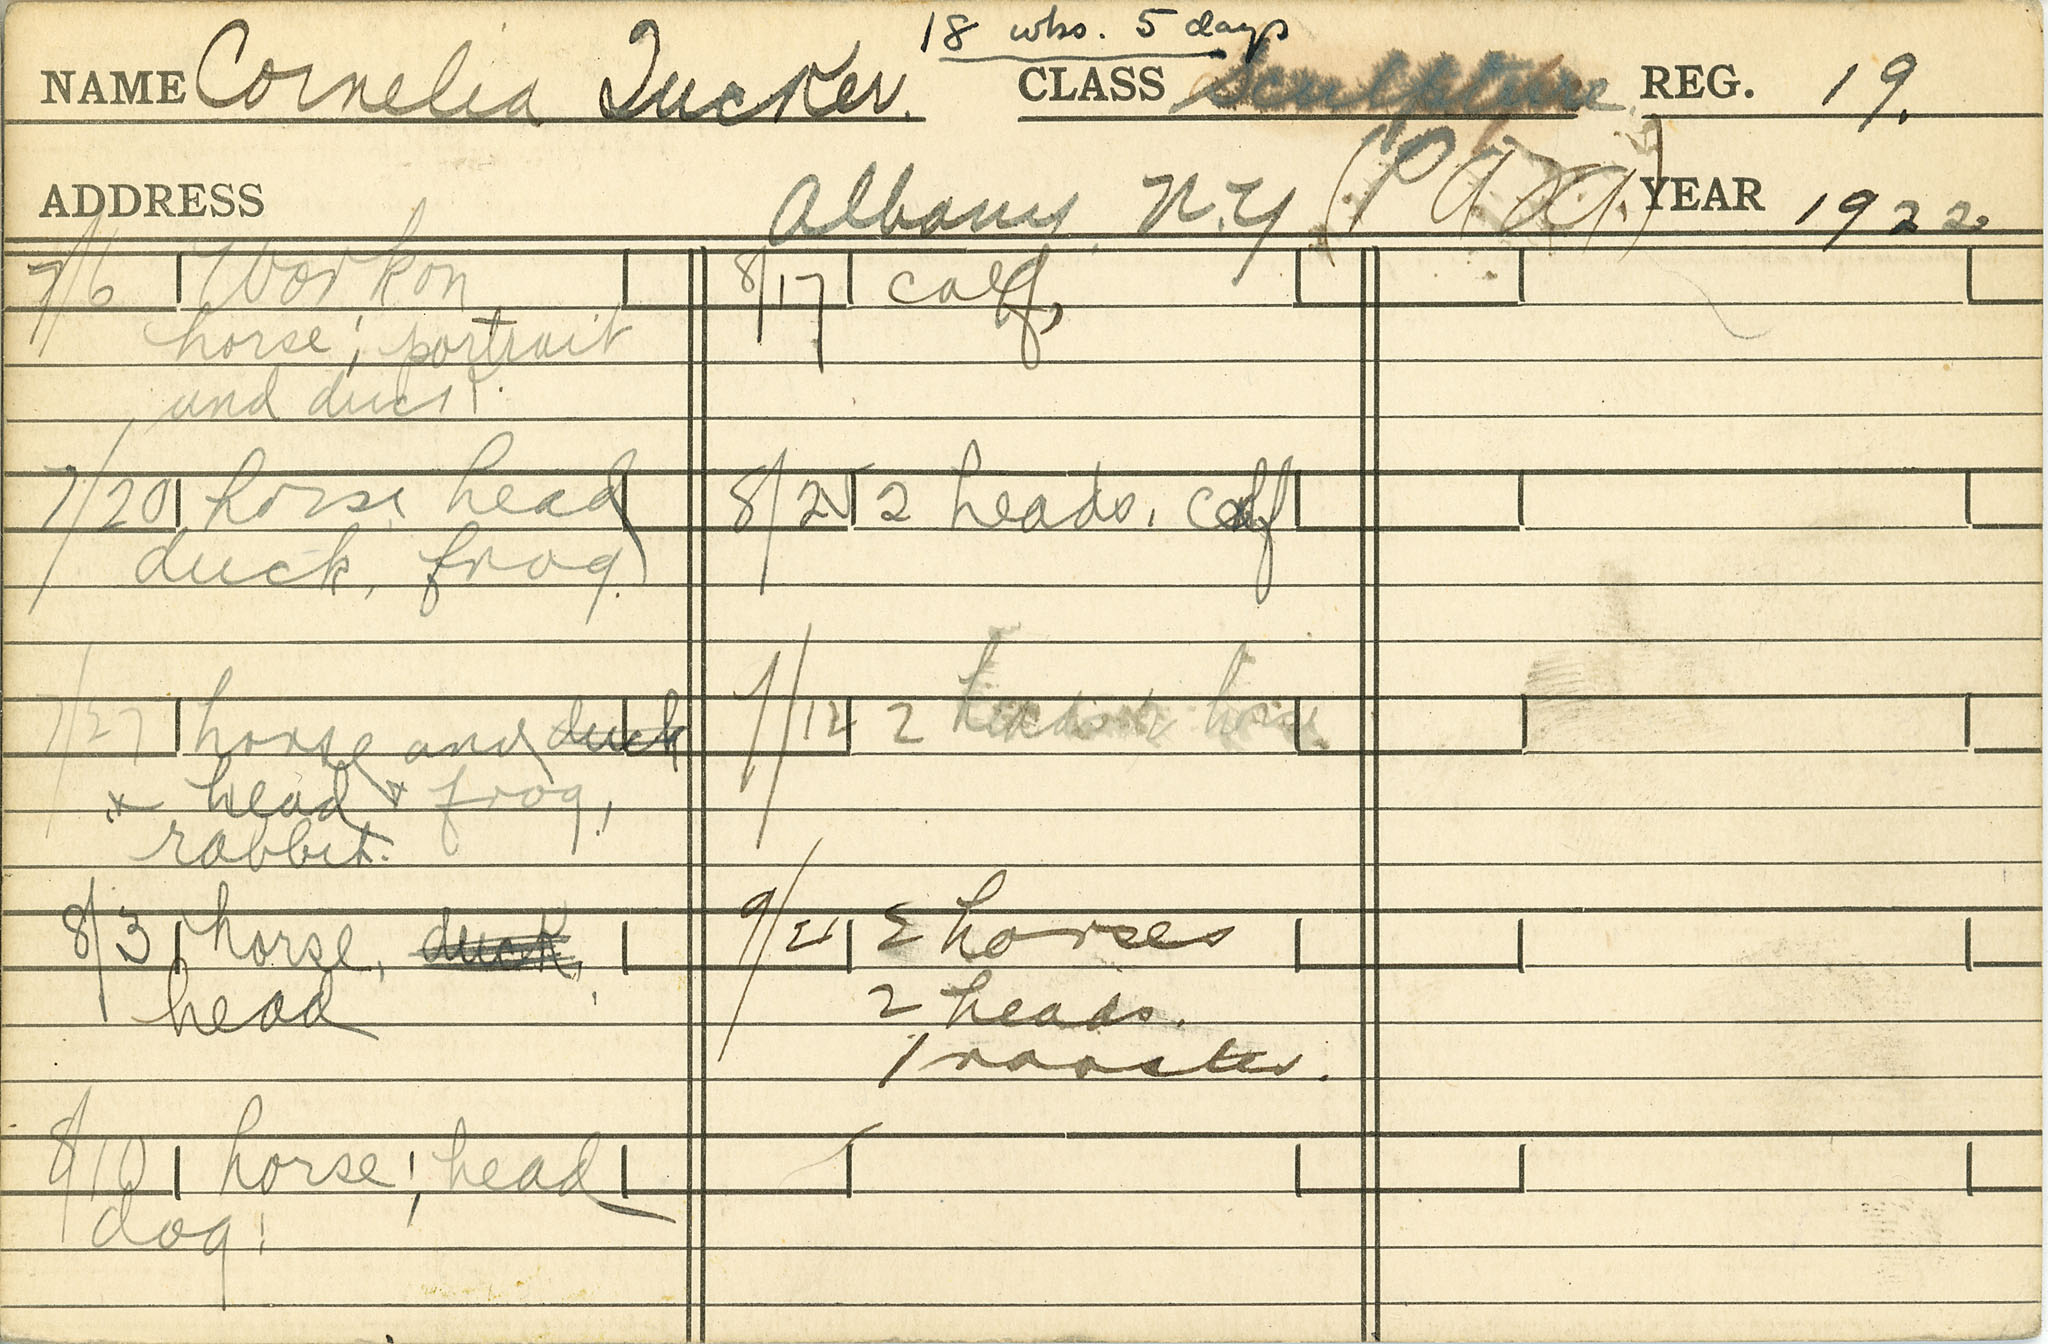 18 wks. 5 days
NAME Cornelia Tucker. CLASS Sculpture REG. 19.
ADDRESS Albany, N.Y. YEAR 1922
7/6 Work on
horse; portrait
and duck.
7/20 horse, head
duck, frog.
7/27 horse and duck
head frog,
rabbit.
8/3 horse, duck,
head
8/10 horse; head
dog.
8/17 calf,
2 heads, calf
2 heads horse
horses
2 heads.
1 rooster.